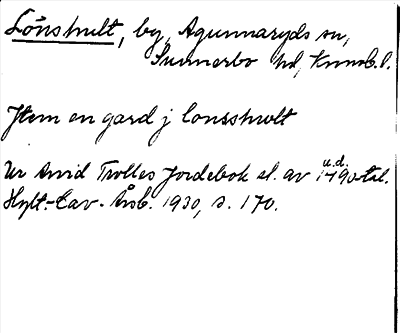 Lönshult, by, Agunnaryds sn,
Sunnerbo hd, Kronob.l.
Item en gard j lonsshwlt
u.d.
Ur Arvid Trolles Jordebok sl. av 1490-tal.
Hylt.-Cav. Årsb. 1930, s. 170.